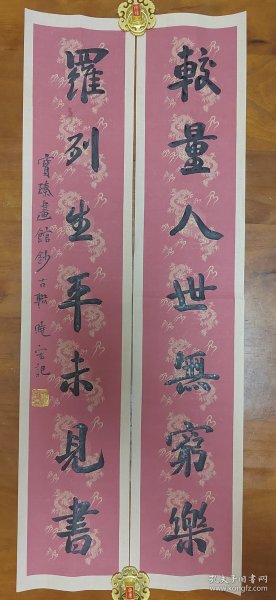 較量人世無窮樂
羅列生平未見書
寶臻畫館鈔古聯 曉雲記
孔夫子旧书网